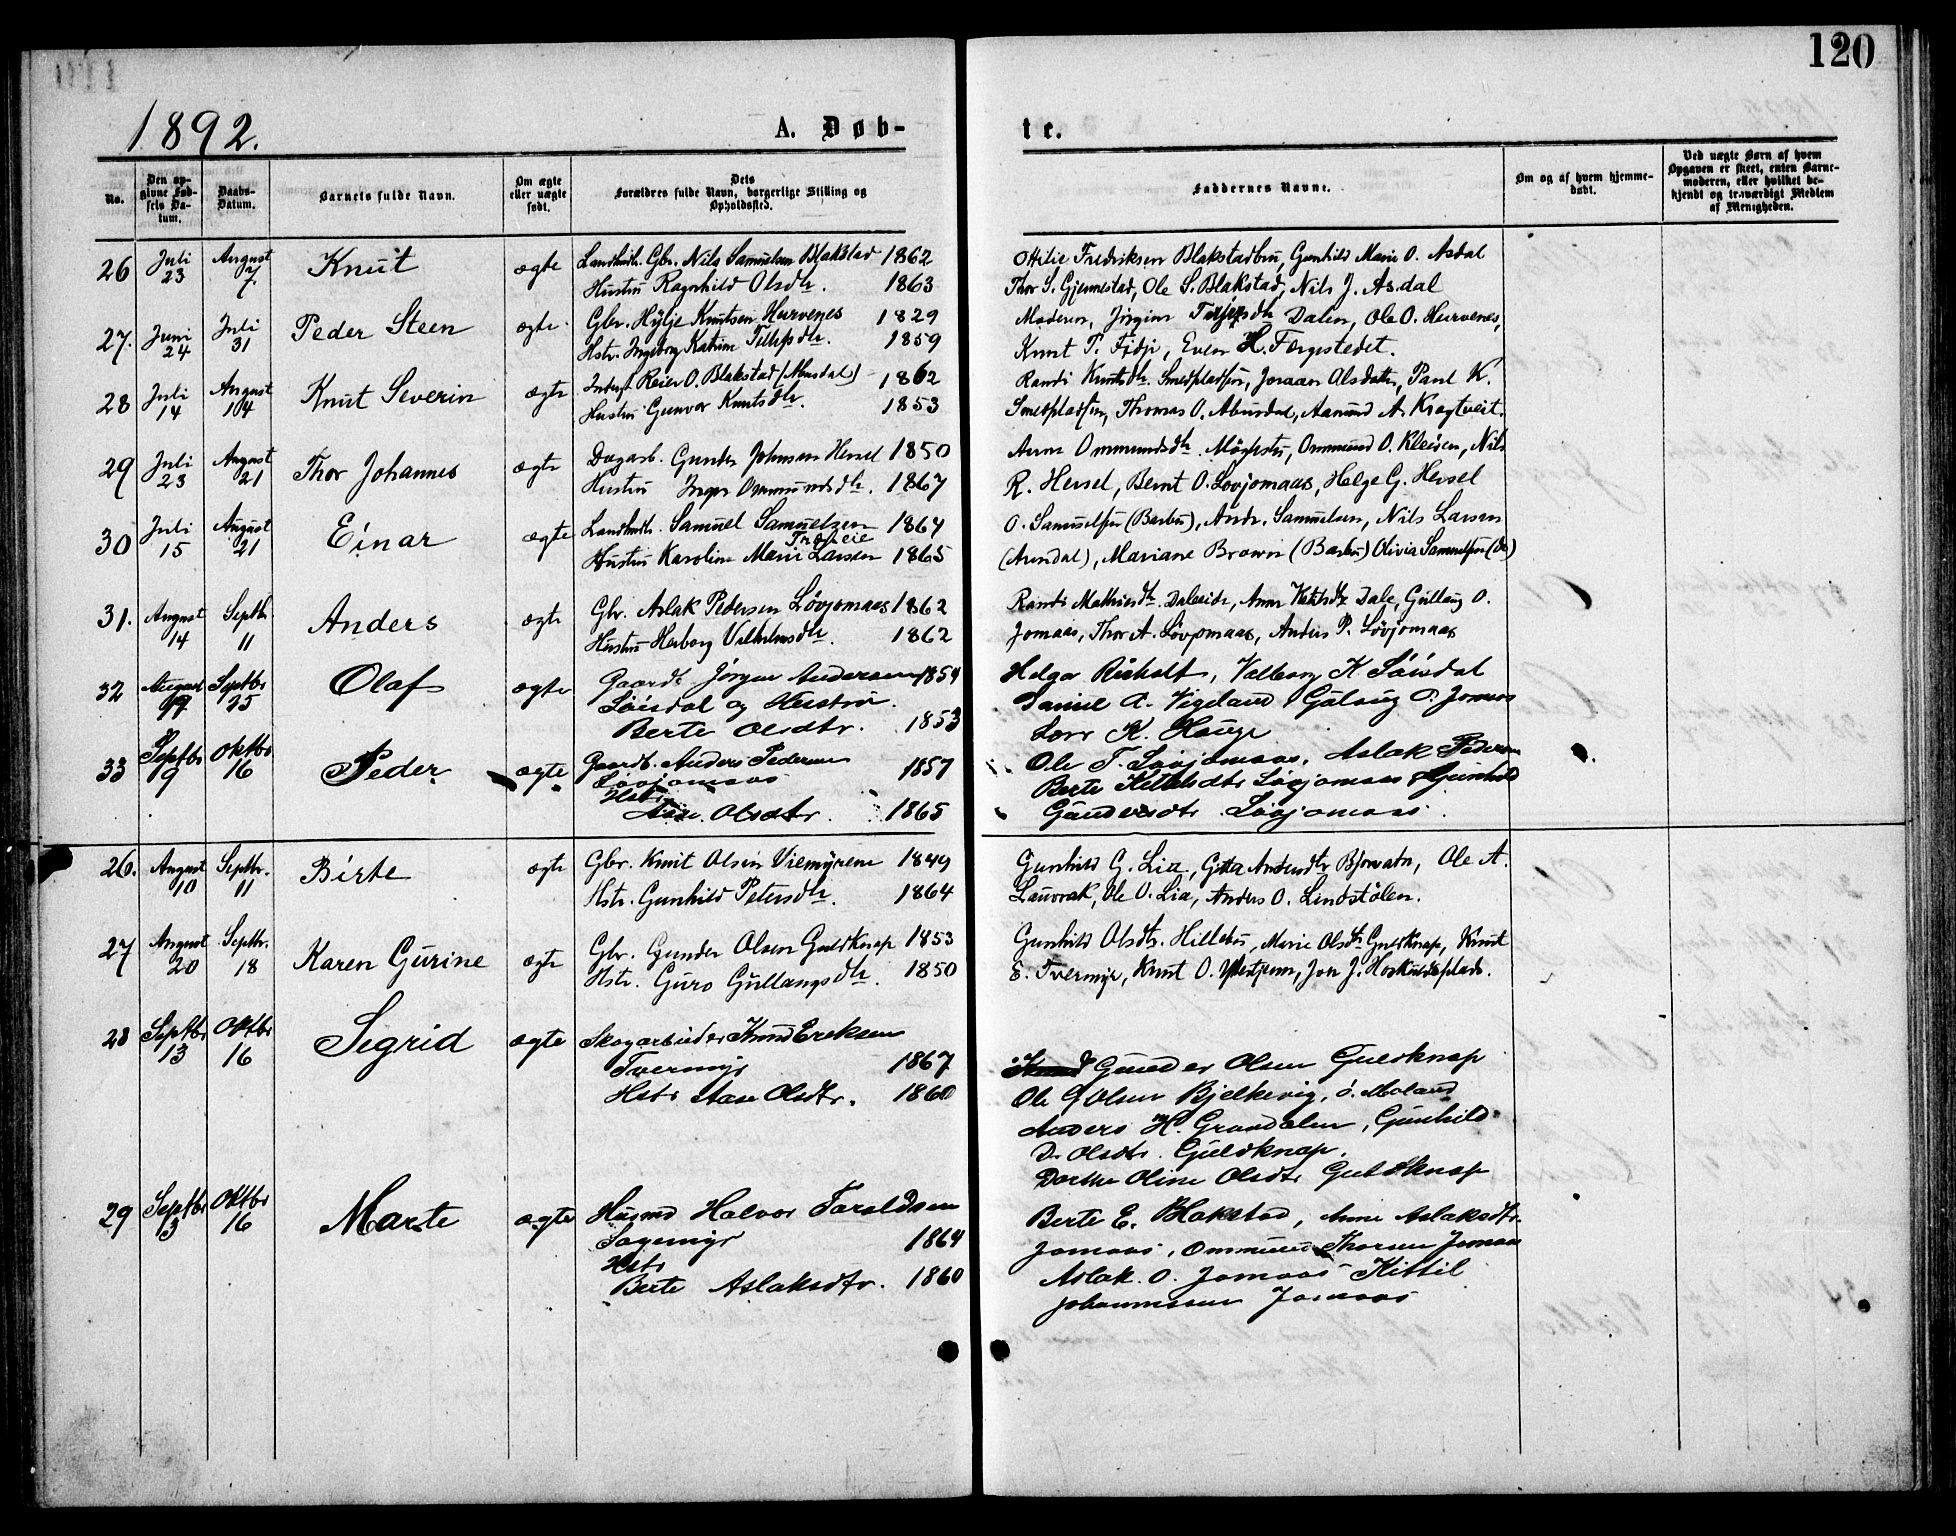 120
1892.
A. Døb-
te.
No.
Den op-
givne Fød-
sels Da-
tum.
Daabs-
Datum.
Barnets fulde Navn.
Om ægte
eller uægte
født.
Dets
Forældres fulde Navn, borgerlige Stilling og
Opholdssted.
Faddernes Navne.
Om og af hvem hjemme-
døbt.
Ved uægte Børn af hvem
Opgaven er skeet, enten Barne-
moderen, eller hvilket be-
kjendt og troværdigt Medlem
af Menigheden.
26 Juli 23 August 7. Knut ægte Landhdl. Gbr. Nils Samuelsen Blakstad 1862
Hustru Ragnhild Olsdtr. 1863
Otilie Fredriksen Blakstadbru, Gunhild Marie O. Asdal
Thor S. Gjennestad, Ole S. Blakstad, Nils J. Asdal
27. Juni 24 Juli 31 Peder Steen ægte Gbr. Hylje Knutsen Hurvenes 1829
Hstr. Ingeborg Katrine Tellefsdtr. 1859
Moderen, Jørgine Dalen, Ole O. Hurvenes,
Knut T. Fidje, Even H. Færgestedet.
28 Juli 14 August 14 Knut Severin ægte Inderst Reier O. Blakstad (Abusdal) 1862
Hustru Gunvor Knutsdtr. 1853
Randi Knutsdtr. Smedpladsen, Joraan Olsdatter, Paul K.
Smedpladsen, Thomas O. Abusdal, Aamund A. Kragtveit.
29 Juli 23 August 21 Thor Johannes ægte Dagarb. Gunder Johnsen Hersel 1850
Hustru Inger Ommundsdtr. 1867
Anne Ommundsdtr. Ommund O. Kleiven, Nils
R. Hersel, Bernt O. Løvjomaas, Helge G. Hersel
30 Juli 15 August 21 Einar ægte Landhdl. Samuel Samuelsen 1864
Hustru Karoline Marie Larsen 1865
O. Samuelsen (Barbu), Andr. Samuelsen, Nils Larsen
(Arendal), Mariane Brown (Barbu) Olivia Samuelsen (do)
31. August 14 Septbr. 11 Anders ægte Gbr. Aslak Pedersen Løvjomaas 1862
Hustru Herborg Vilhelmsdtr. 1862
Randi Mathisdtr. Daleeide, Anne Dale, Gullaug O.
Jomaas, Thor A. Løvjomaas, Anders P. Løvjomaas
32 August Septbr 25 Olaf ægte Gaardb. Jørgen Andersen 1854
Løisdal og Hustru
Berte Olsdtr. 1853
Helga Risholt, Valborg K Løisdal
Daniel A. Vigeland Gulaug O. Jomaas
Lars K. Hauge
33 Septbr 9 Oktbr 16 Peder ægte Gaardb. Anders Pedersen 1857
Løvjomaas
Hstr
Aase Olsdtr. 1865
Ole T. Løvjomaas, Aslak Pedersen
Berte Løvjomaas Gunhild
Gundersdtr Løvjomaas
26. August 10 Septbr. 11 Birte ægte Gbr. Knut Olsen Viemyrene 1849
Hstr. Gunhild Petersdtr. 1864
Gunhild G. Lia, Gitta Andersdtr Bjorvatn, Ole A.
Lauvrak, Ole O. Lia, Anders O. Lindstølen.
27 August 20 Septbr. 18 Karen Gurine ægte Gbr. Gunder Olsen Guldknap 1853
Hstr. Guro Gullaugsdtr. 1850
Gunhild Olsdtr. Hillebu, Marie Olsdtr Guldknap, Knut
E. Tvermyr, Knut O. Jon J. Hoskuldsplads.
28 Septbr 13 Oktbr 16 Sigrid ægte Skogarbeider Knud Ereksen
Tvermyr 1867
Hstr Aase Olsdtr. 1860
Gunder Olsen Guldknap
Ole G Olsen Bjelkevig, ø. Moland
Anders H. Grandalen, Gunhild
D. Olsdtr. Guldknap.
Dorthe Oline Olsdtr Guldknap
29 Septbr 3 Oktbr 16 Marte ægte Husmd Halvor Taraldsen
Sagemyr 1864
Hstr
Berte Aslaksdtr. 1860
Berte E. Blakstad, Anne Aslaksdtr.
Jomaas, Ommund Thorsen Jomaas
Aslak O. Jomaas Kittil
Johannessen Jomaas